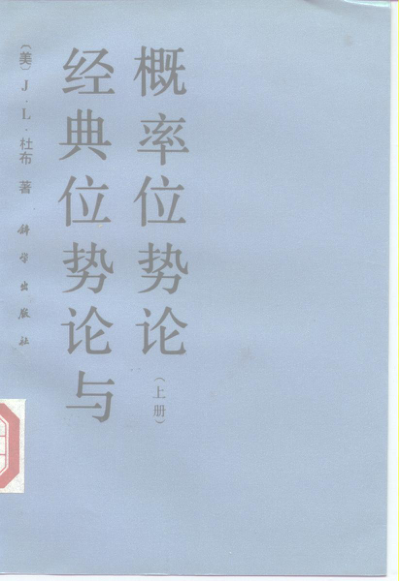 〔美〕J·L·杜布 著
科学出版社
经典位势论与
概率位势论
(上册)